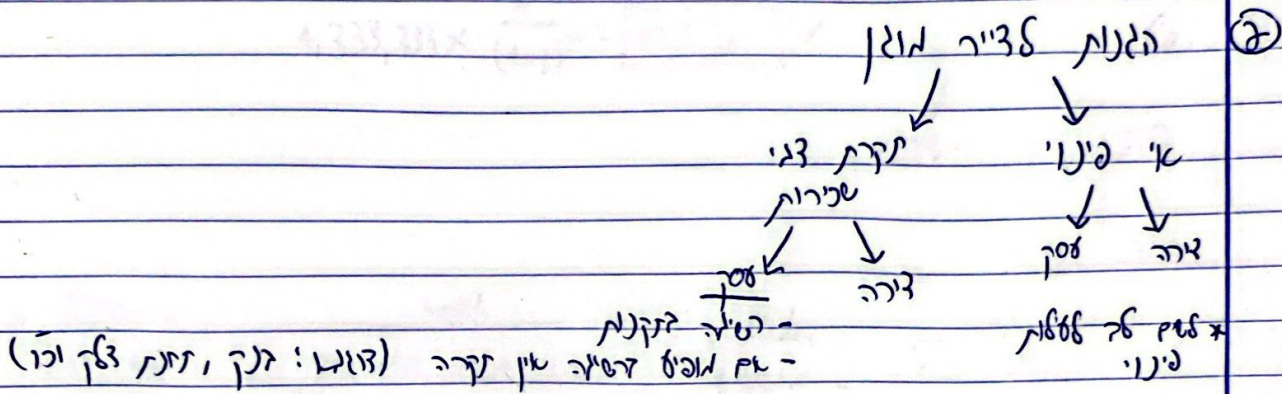 ② הגנות לדייר מוגן
אי פינוי תקרת דגי
שכירות
דירה עסק דירה עסק
* לשים לב לעלות פינוי
- רשימה בתקנות
- אם מופיע ברשימה אין תקרה (דוגמא: בנק, תחנת דלק וכו')